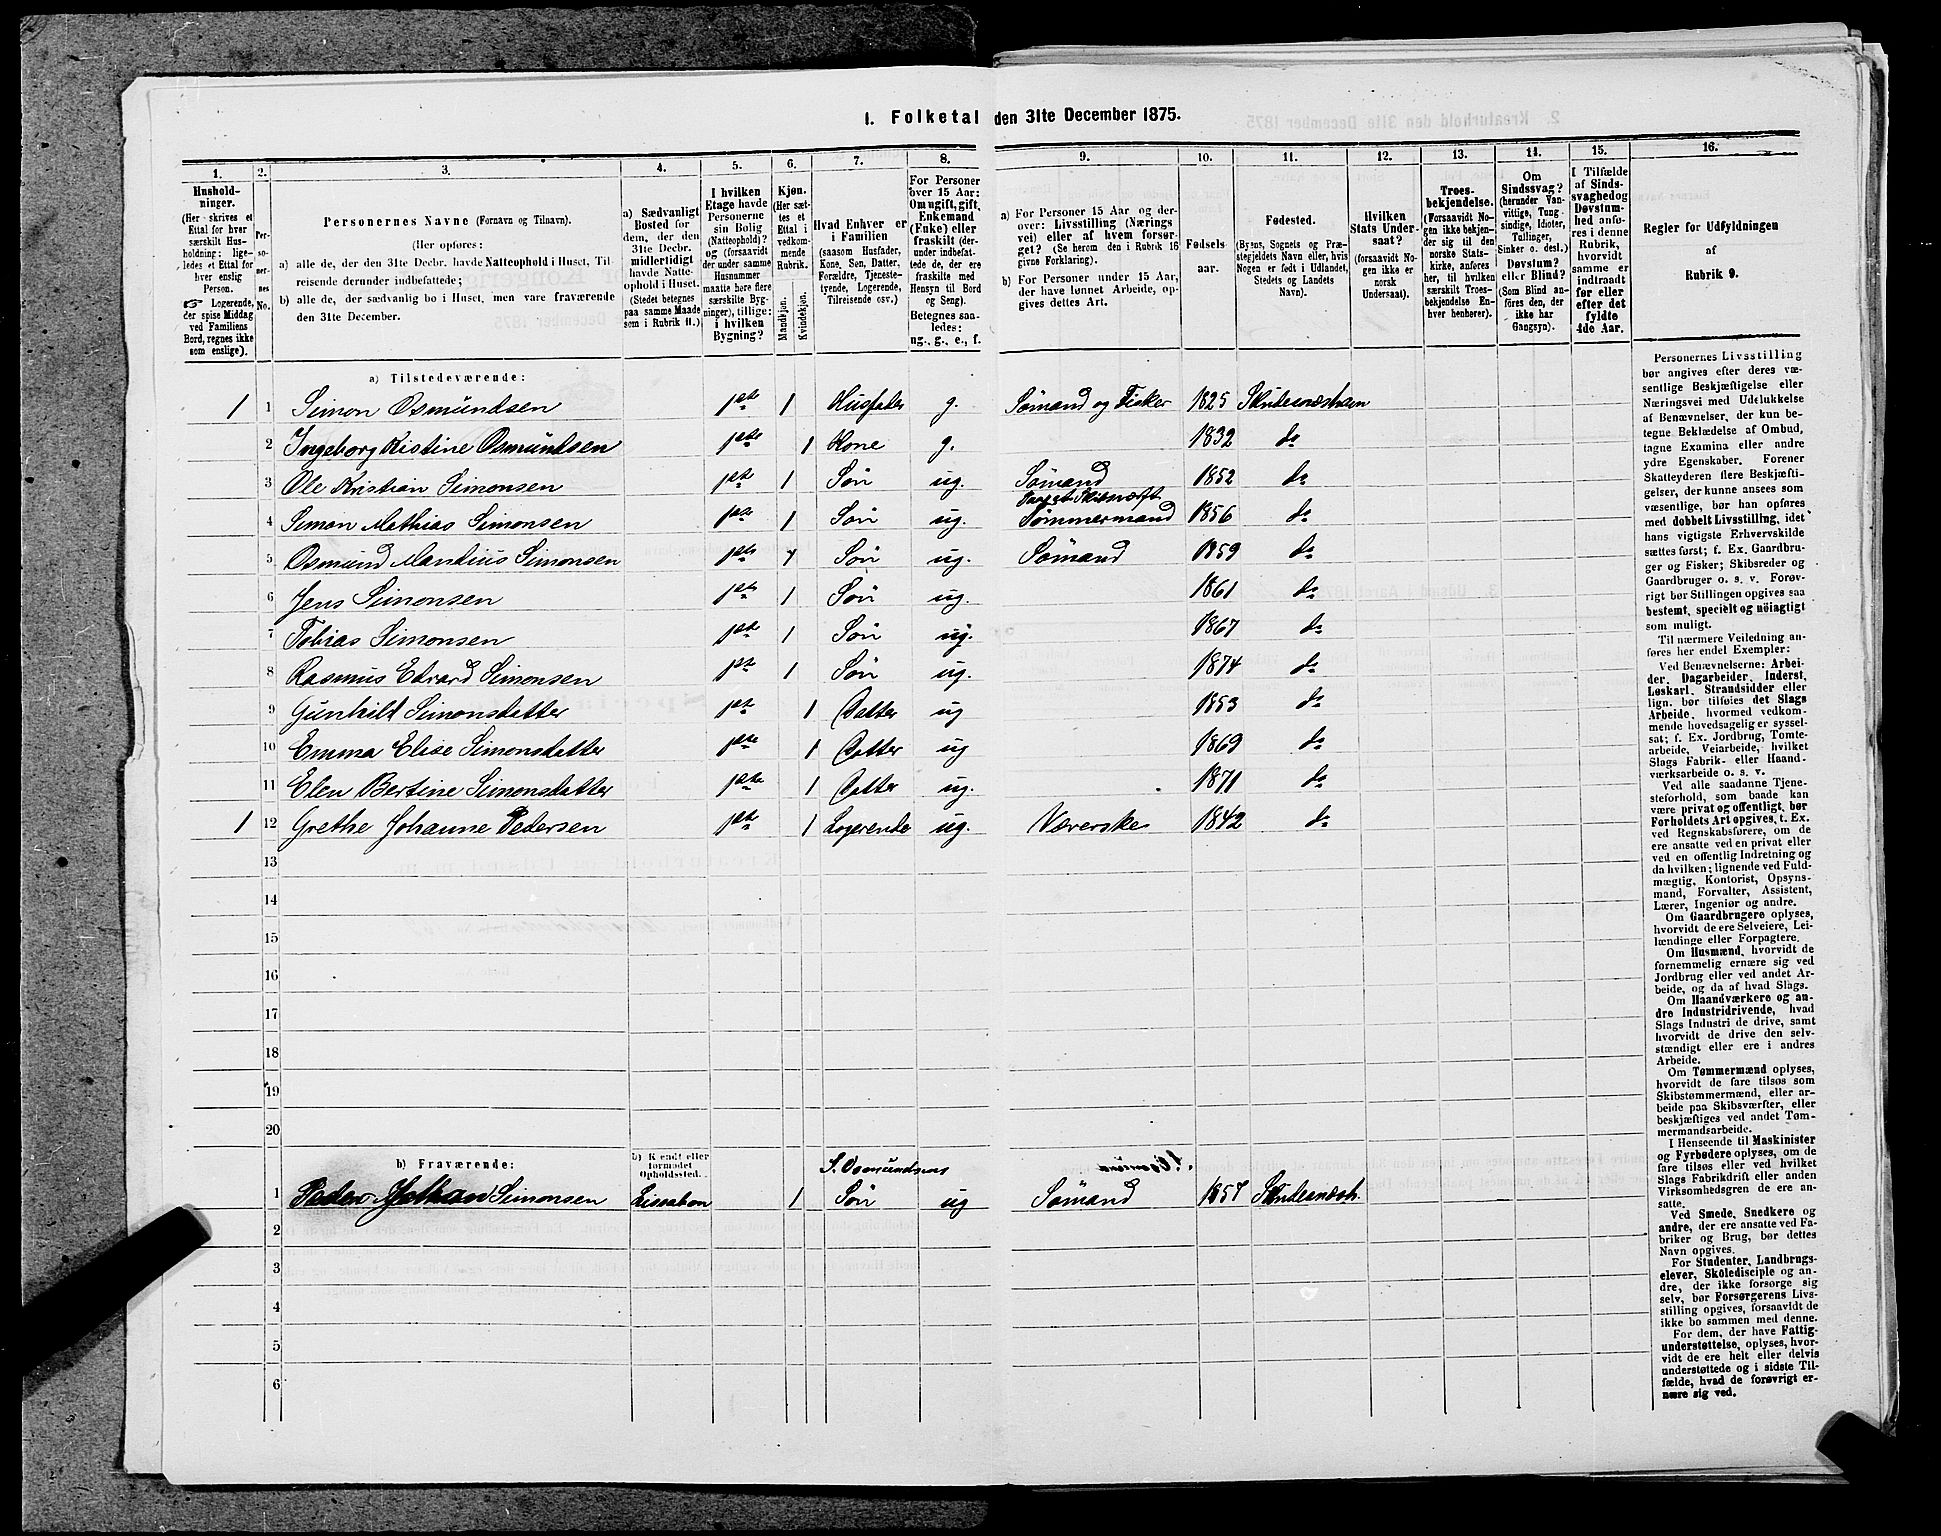 1. Folketal den 31te December 1875.
1. 2. 3. 4. 5. 6. 7. 8. 9. 10. 11. 12. 13. 14. 15. 16.
Hushold-
ninger.
(Her skrives et
Ettal for hver
særskilt Hus-
holdning; lige-
ledes et Ettal for
hver enslig
Person.
☞ Logerende,
der spise Middag
ved Familiens
Bord, regnes ikke
som enslige).
Per-
so-
ner-
nes
No.
Personernes Navne (Fornavn og Tilnavn).
(Her opføres:
a) alle de, der den 31te Decbr. havde Natteophold i Huset, Til-
reisende derunder indbefattede;
b) alle de, der sædvanlig bo i Huset, men vare fraværende
den 31te December.
a) Sædvanligt
Bosted for
dem, der den
31te Decbr.
midlertidigt
havde Natte-
ophold i Huset.
(Stedet betegnes
paa samme Maade
som i Rubrik 11.)
I hvilken
Etage havde
Personerne
sin Bolig
(Natteophold)?
og (forsaavidt
der under samme
Husnummer
maatte høre flere
særskilte Byg-
ninger), tillige:
i hvilken
Bygning?
Kjøn.
(Her sæt-
tes et
Ettal i
vedkom-
mende
Rubrik.
Mandkjøn.
Kvindekjøn.
Hvad Enhver er
i Familien
(saasom Husfader,
Kone, Søn, Datter,
Forældre, Tjeneste-
tyende, Logerende,
Tilreisende osv.)
For Personer
over 15 Aar:
Om ugift, gift,
Enkemand
(Enke) eller
fraskilt (der-
under indbefat-
tede de, der ere
fraskilte med
Hensyn til Bord
og Seng).
Betegnes saa-
ledes:
ug., g., e., f.
a) For Personer 15 Aar og der-
over: Livsstilling (Nærings
vei) eller af hvem forsør-
get? (Se herom den i Rubrik 16
givne Forklaring).
b) For Personer under 15 Aar,
der have lønnet Arbeide, op-
gives dettes Art.
Fødsels
aar.
Fødested.
(Byens, Sognets og Præ-
stegjeldets Navn eller, hvis
Nogen er født i Udlandet,
Stedets og Landets
Navn).
Hvilken
Stats Under-
saat?
(forsaavidt No-
gen ikke er
norsk
Undersaat).
Troes-
bekjendelse.
(Forsaavidt No-
gen ikke bekjen-
der sig til den
norske Stats-
kirke, anføres
her, til hvilken
særskilt Troes-
bekjendelse En-
hver henhører).
Om
Sindssvag?
(herunder Van-
vittige, Tung-
sindige, Idioter,
Tullinger,
Sinker o. desl.).
Døvstum?
eller Blind?
(Som Blind an-
føres den, der
ikke har
Gangsyn).
I Tilfælde
af Sinds-
svaghed og
Døvstum-
hed anfø-
res i denne
Rubrik,
hvorvidt
samme er
indtraadt
før eller
efter det
fyldte
4de Aar.
Regler for Udfyldningen
af
Rubrik 9.
a) Tilstedeværende:
1 1 Simon Osmundsen 1ste 1 Husfader g. Sømand og Fisker 1825 Skudesneshavn
2 Ingeborg Kristine Osmundsen 1ste 1 Kone g. 1832 do
3 Ole Kristian Simonsen 1ste 1 Søn ug. Sømand 1852 do
4 Simon Mathias Simonsen 1ste 1 Søn ug. Tømmermand 1856 do
5 Osmund Mandius Simonsen 1ste 1 Søn ug. Sømand 1859 do
6 Jens Simonsen 1ste 1 Søn ug. 1861 do
7 Tobias Simonsen 1ste 1 Søn ug. 1867 do
8 Rasmus Edvard Simonsen 1ste 1 Søn ug. 1874 do
9 Gunhild Simonsdatter 1ste 1 Datter ug 1853 do
10 Emma Elise Simonsdatter 1ste 1 Datter ug 1869 do
11 Elen Bertine Simonsdatter 1ste 1 Datter ug. 1871 do
1 12 Grethe Johanne Pedersen 1ste 1 Logerende ug. Væverske 1842 do
13
14
15
16
17
18
19
20
b) Fraværende:
b) Kjendt eller
formodet
Opholdssted.
S. Osmundsens
1 Peder Johan Simonsen Lissabon 1 Søn ug Sømand 1857 Skudesnesh.
2
3
4
5
6
Personernes Livsstilling
bør angives efter deres væ-
sentlige Beskjæftigelse eller
Næringsvei med Udelukkelse
af Benævnelser, der kun be-
tegne Beklædelse af Ombud,
tagne Examina eller andre
ydre Egenskaber. Forener
Skatteyderen flere Beskjæfti-
gelser, der kunne ansees som
væsentlige, bør han opføres
med dobbelt Livsstilling, idet
hans vigtigste Erhvervskilde
sættes først; f. Ex. Gaardbru-
ger og Fisker; Skibsreder og
Gaardbruger o. s. v. Forøv-
rigt bør Stillingen opgives saa
bestemt, specielt og nöiagtigt
som muligt.
Til nærmere Veiledning an-
føres her endel Exempler:
Ved Benævnelserne: Arbei-
der, Dagarbeider, Inderst,
Løskarl, Strandsidder eller
lign. bør tilføies det Slags
Arbeide, hvormed vedkom-
mende hovedsagelig er syssel-
sat; f. Ex. Jordbrug, Tomte-
arbeide, Veiarbeide, hvilket
Slags Fabrik- eller Haand-
værksarbeide o. s. v.
Ved alle saadanne Tjene-
steforhold, som baade kan
være privat og offentligt, bør
Forholdets Art opgives, t. Ex.
ved Regnskabsførere, om de
ere ansatte ved en privat eller
ved en offentlig Indretning og
da hvilken; lignende ved Fuld-
mægtig, Kontorist, Opsyns-
mand, Forvalter, Assistent,
Lærer, Ingeniør og andre.
Om Gaardbrugere oplyses,
hvorvidt de ere Selveiere, Lei-
lændinge eller Forpagtere.
Om Husmænd, hvorvidt de
fornemmelig ernære sig ved
Jordbrug eller ved andet Ar-
beide, og da af hvad Slags.
Om Haandværkere og an-
dre Industridrivende, hvad
Slags Industri de drive, samt
hvorvidt de drive den selv-
stændigt eller ere i andres
Arbeide.
Om Tømmermænd oplyses,
hvorvidt de fare tilsøs som
Skibstømmermænd, eller ar-
beide paa Skibsværfter, eller
beskjæftiges ved andet Tøm-
mermandsarbeide.
I Henseende til Maskinister
og Fyrbødere oplyses, om de
fare tilsøs eller ved hvilket
Slags Fabrikdrift eller anden
Virksomhedsgren de ere an-
satte.
Ved Smede, Snedkere og
andre, der ere ansatte ved Fa-
briker og Brug, bør dettes
Navn opgives.
For Studenter, Landbrugs-
elever, Skoledisciple og an-
dre, der ikke forsørge sig
selv, bør Forsørgerens Livs-
stilling opgives, forsaavidt de
ikke bo sammen med denne.
For dem, der have Fattig-
understøttelse, oplyses, hvor-
vidt de ere helt eller delvis
understøttede og i sidste Til-
fælde, hvad de forøvrigt er-
nære sig ved.